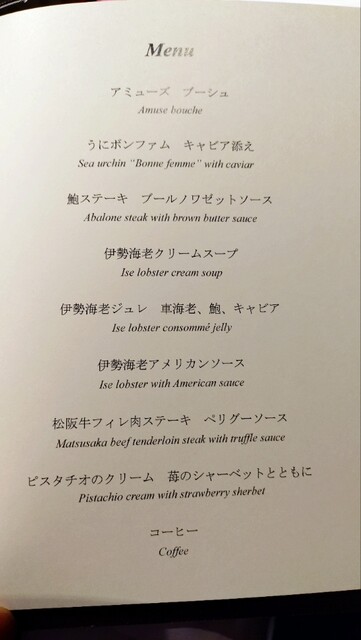 Menu
アミューズ ブーシュ
Amuse bouche
うにボンファム キャビア添え
Sea urchin “Bonne femme” with caviar
鮑ステーキ ブールノワゼットソース
Abalone steak with brown butter sauce
伊勢海老クリームスープ
Ise lobster cream soup
伊勢海老ジュレ 車海老、鮑、キャビア
Ise lobster consommé jelly
伊勢海老アメリカンソース
Ise lobster with American sauce
松阪牛フィレ肉ステーキ ペリグーソース
Matsusaka beef tenderloin steak with truffle sauce
ピスタチオのクリーム 苺のシャーベットとともに
Pistachio cream with strawberry sherbet
コーヒー
Coffee